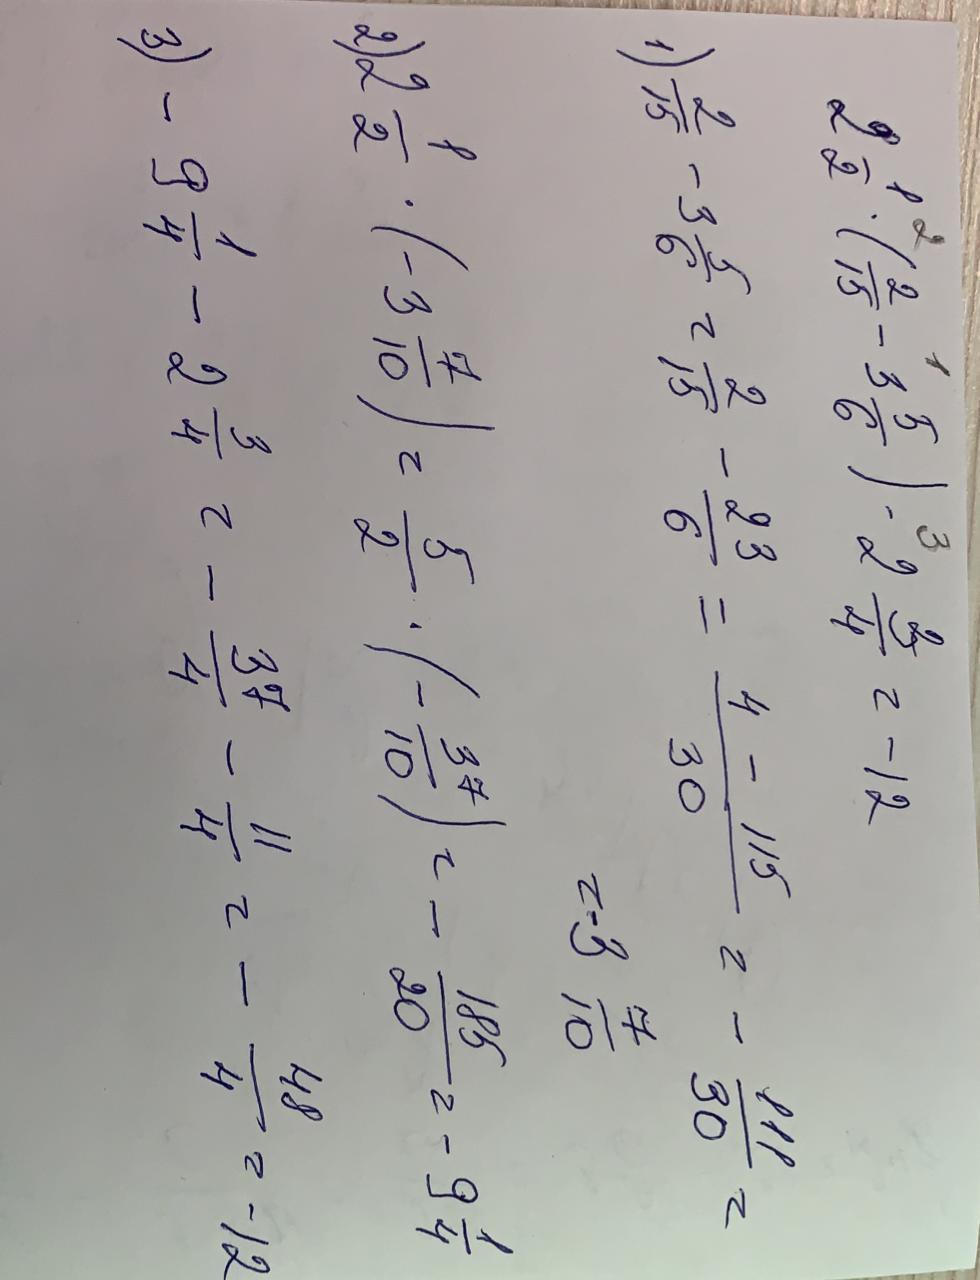 2 1/2 · (2/15 - 3 5/6) - 2 3/4 = -12
1) 2/15 - 3 5/6 = 2/15 - 23/6 = (4 - 115)/30 = - 111/30 =
= -3 7/10
2) 2 1/2 · (-3 7/10) = 5/2 · (- 37/10) = - 185/20 = -9 1/4
3) - 9 1/4 - 2 3/4 = - 37/4 - 11/4 = - 48/4 = -12